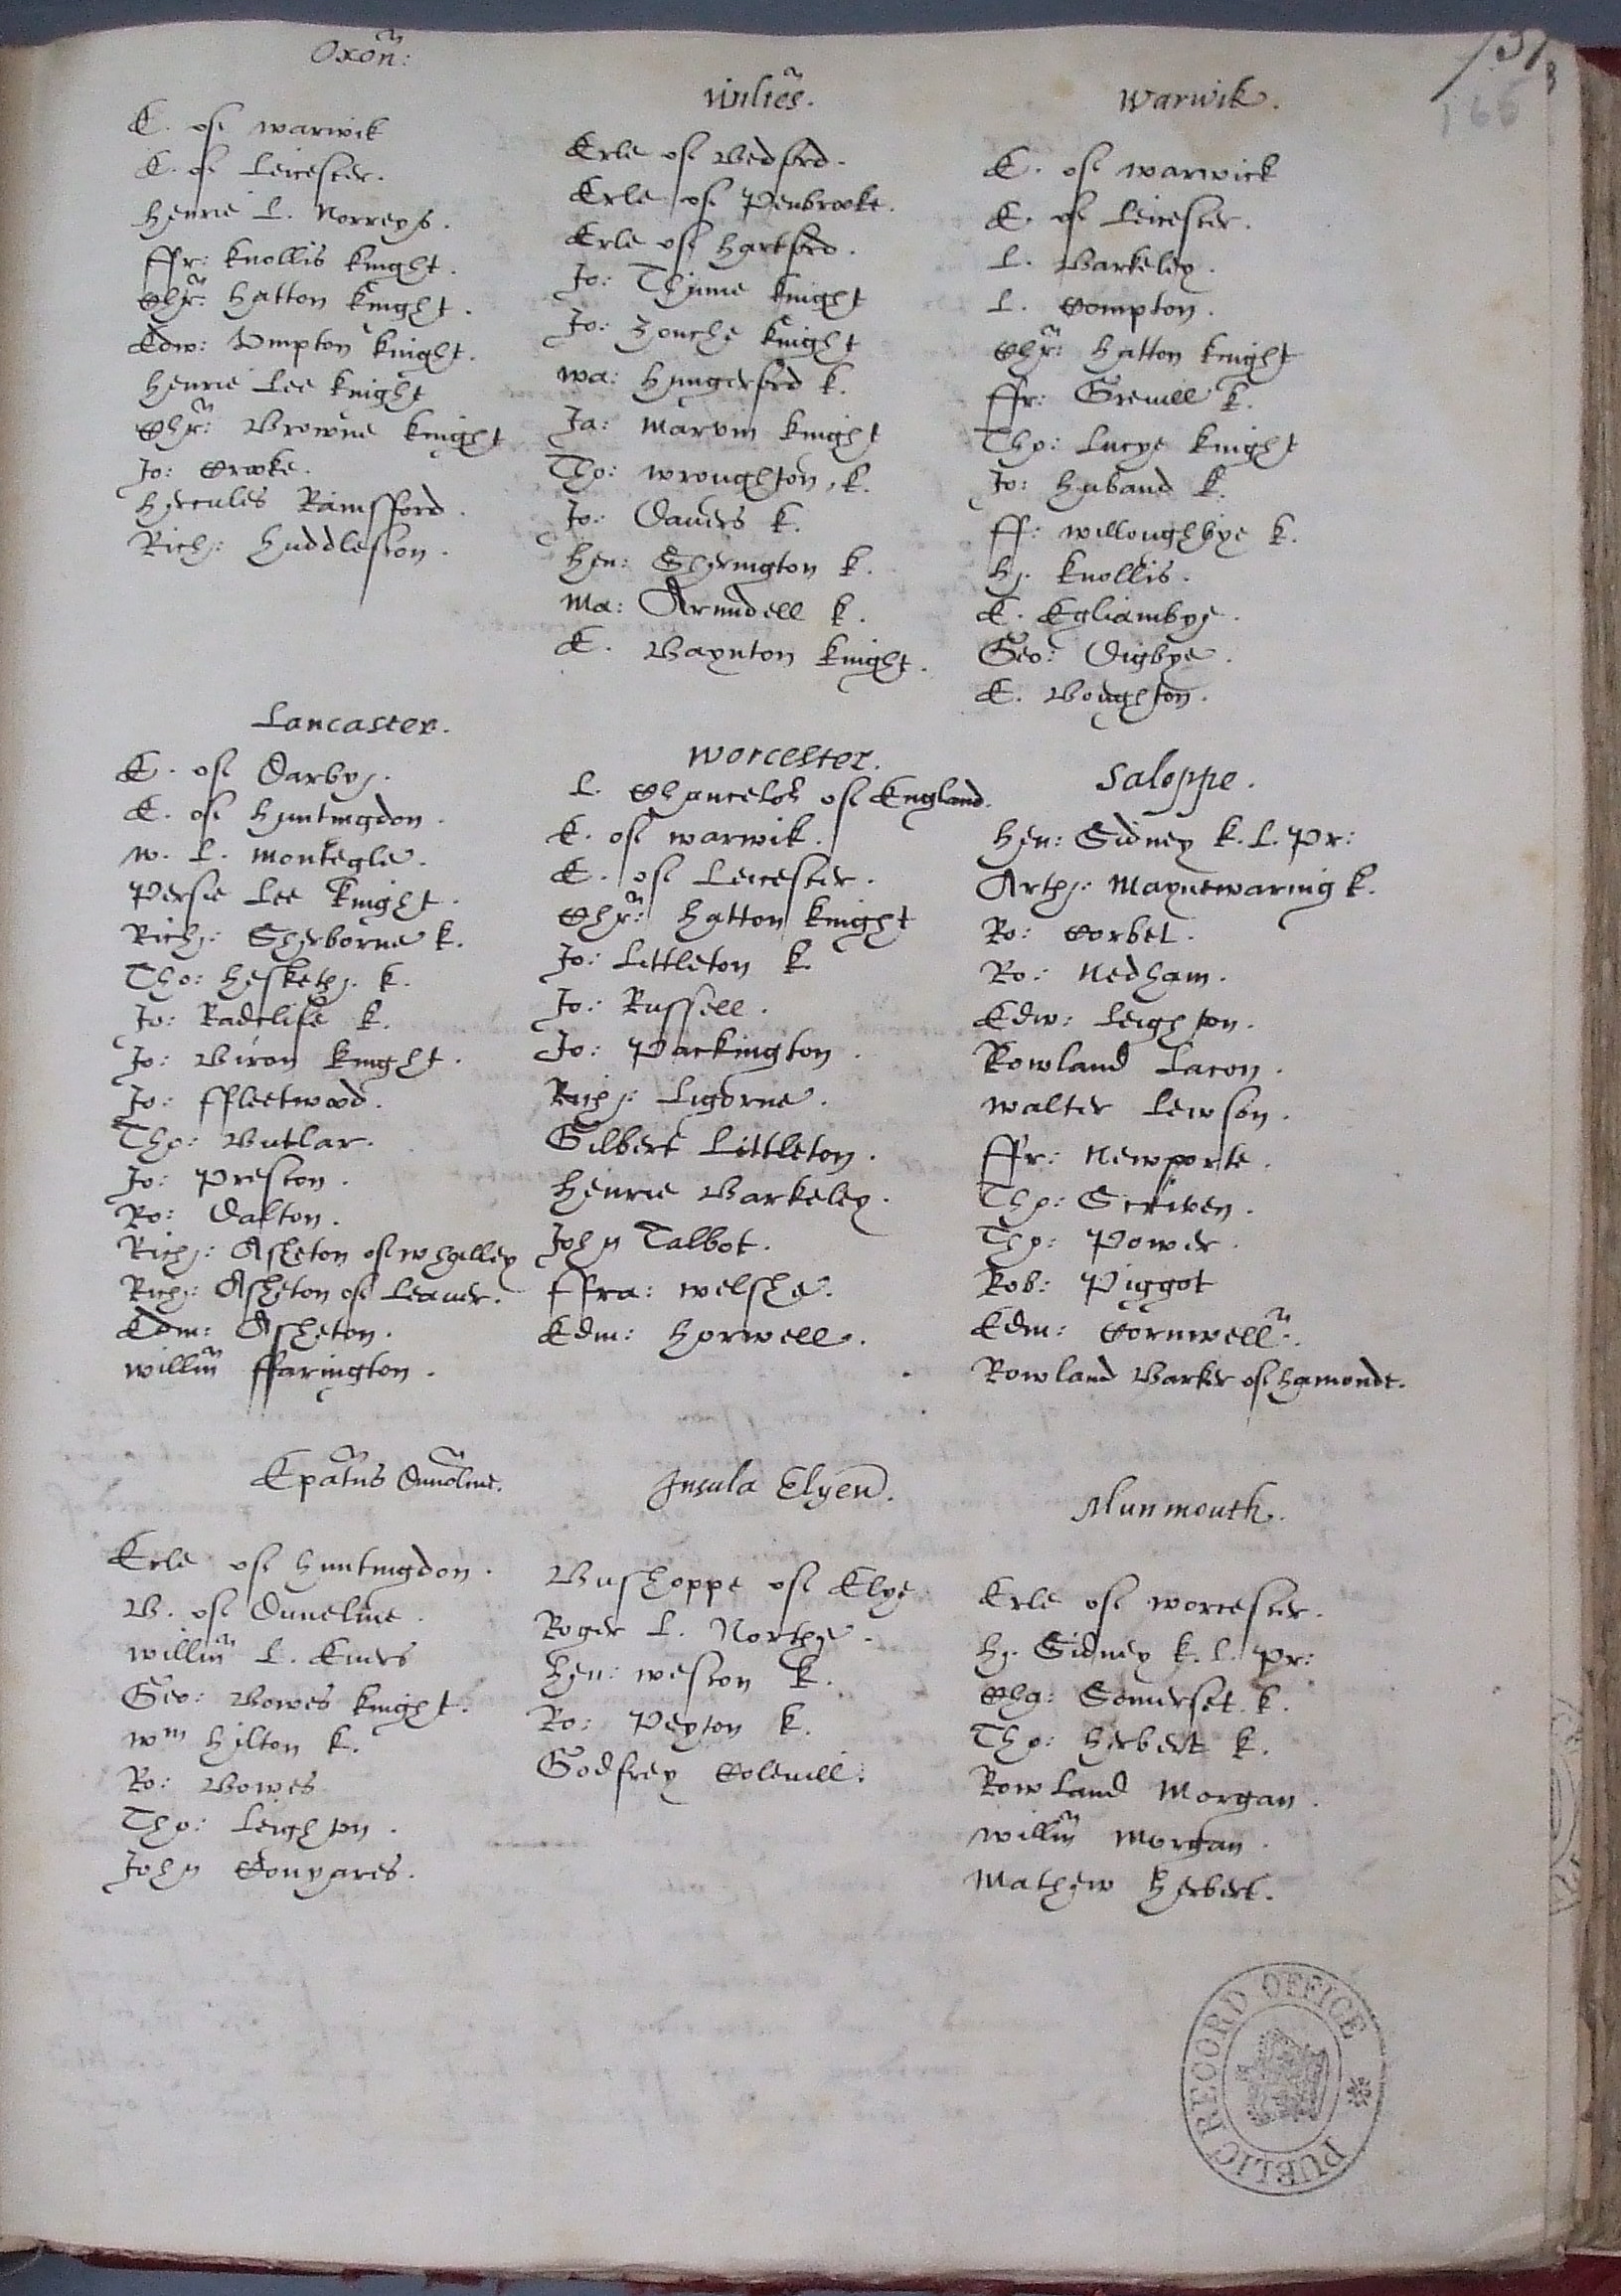 137
8
166
Oxon̄:
E. of warwick
E. of Leicester.
Henrie L. Norreys.
ffr: Knollis knight.
Chr̄: Hatton knight.
Edw: Vmpton knight.
Henrie Lee knight
Chr̄: Browne knight
Jo: Crooke.
Hercules Rainsfford.
Rich: Huddleston.
Wiltēs.
Erle of Bedford.
Erle of Penbrooke.
Erle of Hartford.
Jo: Thinne knight
Jo: Zouche knight
wa: Hungerford k.
Ja: Marvin knight
Tho: wroughton, k.
Jo: Davers k.
Hen: Sherington k.
Ma: Arundell k.
E. Baynton knight.
Warwik.
E. of warwick
E. of Leicester.
L. Barkeley.
L. Compton.
Chr̄: Hatton knight
ffr: Grevill k.
Tho: Lucye knight
Jo: Huband k.
ff: willoughbye k.
H. Knollis.
E. Egliambye.
Geo: Digbye.
E. Boughton.
Lancaster.
E. of Darby.
E. of Huntingdon.
w. L. Montegle.
Persie Lee knight.
Rich: Sherborne k.
Tho: Hesketh. k.
Jo: Radclife k.
Jo: Biron knight.
Jo: ffleetwood.
Tho: Butlar.
Jo: Preston.
Ro: Dalton.
Rich: Asheton of whalley
Rich: Asheton of Leaver.
Edm: Asheton.
willm̄ ffarington.
Worcester.
L. Chancelor of England.
E. of warwik.
E. of Leicester.
Chr̄: Hatton knight
Jo: Littleton k.
Jo: Russell.
Jo: Packington.
Rich: Ligorne.
Gilbert Littleton.
Henrie Barkeley.
John Talbot.
ffra: welshe.
Edm: Horwell.
Saloppe.
Hen: Sidney k. L. Pr:
Arth: Maynewaring k.
Ro: Corbet.
Ro: Nedham.
Edw: Leighton.
Rowland Lacon.
Walter Lewson.
ffr: Newporte.
Tho: Scriven.
Tho: Power.
Rob: Piggot
Edm: Cornwell̄.
Rowland Barker of Hamonde.
Epātus Dunōlme.
Erle of Huntingdon.
B. of Dunelme.
willm̄ L. Evers
Geo: Bowes knight.
wm Hilton k.
Ro: Bowes
Tho: Leighton.
John Conyares.
Insula Elyen.
Busshoppe of Elye
Roger L. Northe.
Hen: weston k.
Ro: Peyton k.
Godfrey Colevill.
Munmouth.
Erle of worcester.
H. Sidney k. L. Pr:
Cha: Somerset. k.
Tho: Herbert k.
Rowland Morgan.
willm̄ Morgan.
Mathew Herbert.
PUBLIC RECORD OFFICE